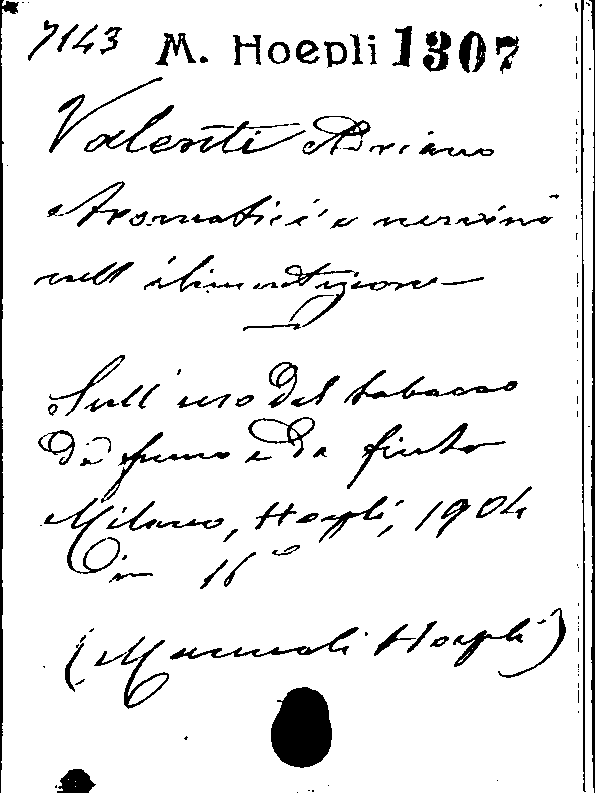 7143 M. Hoepli 1307
Valenti Adriano
Aromatici e nervini
nell'alimentazione
Sull'uso del tabacco
da fumo e da fiuto
Milano, Hoepli, 1904
in 16°
(Manuali Hoepli)